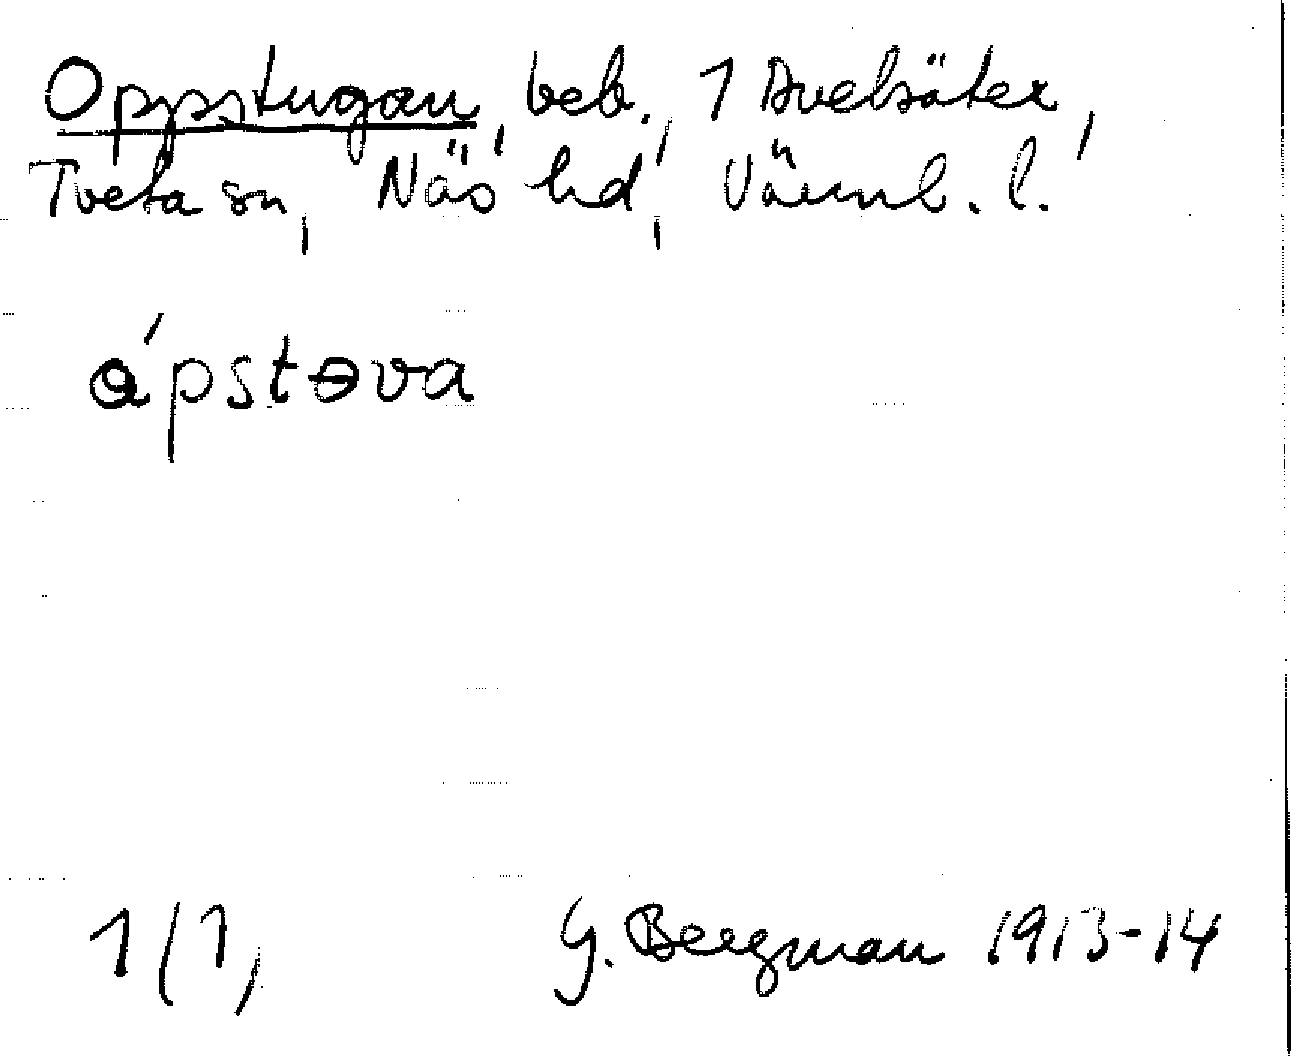 Oppstugan, beb., 1 Avelsäter,
Tveta sn, Näs hd, Värml. l.
ápstɵva
1/1, G. Bergman 1913-14